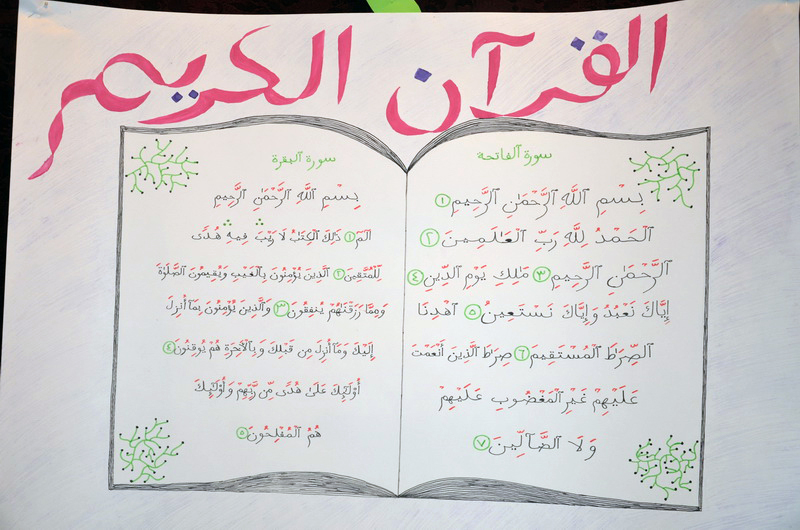 القرآن الكريم
سورة الفاتحة
بِسْمِ ٱللَّهِ ٱلرَّحْمَٰنِ ٱلرَّحِيمِ ١
ٱلْحَمْدُ لِلَّهِ رَبِّ ٱلْعَٰلَمِينَ ٢
ٱلرَّحْمَٰنِ ٱلرَّحِيمِ ٣ مَٰلِكِ يَوْمِ ٱلدِّينِ ٤
إِيَّاكَ نَعْبُدُ وَإِيَّاكَ نَسْتَعِينُ ٥ ٱهْدِنَا
ٱلصِّرَٰطَ ٱلْمُسْتَقِيمَ ٦ صِرَٰطَ ٱلَّذِينَ أَنْعَمْتَ
عَلَيْهِمْ غَيْرِ ٱلْمَغْضُوبِ عَلَيْهِمْ
وَلَا ٱلضَّآلِّينَ ٧
سورة البقرة
بِسْمِ ٱللَّهِ ٱلرَّحْمَٰنِ ٱلرَّحِيمِ
الٓمٓ ١ ذَٰلِكَ ٱلْكِتَٰبُ لَا رَيْبَ ۛ فِيهِ ۛ هُدًى
لِّلْمُتَّقِينَ ٢ ٱلَّذِينَ يُؤْمِنُونَ بِٱلْغَيْبِ وَيُقِيمُونَ ٱلصَّلَوٰةَ
وَمِمَّا رَزَقْنَٰهُمْ يُنفِقُونَ ٣ وَٱلَّذِينَ يُؤْمِنُونَ بِمَآ أُنزِلَ
إِلَيْكَ وَمَآ أُنزِلَ مِن قَبْلِكَ وَبِٱلْءَاخِرَةِ هُمْ يُوقِنُونَ ٤
أُو۟لَٰٓئِكَ عَلَىٰ هُدًى مِّن رَّبِّهِمْ وَأُو۟لَٰٓئِكَ
هُمُ ٱلْمُفْلِحُونَ ٥